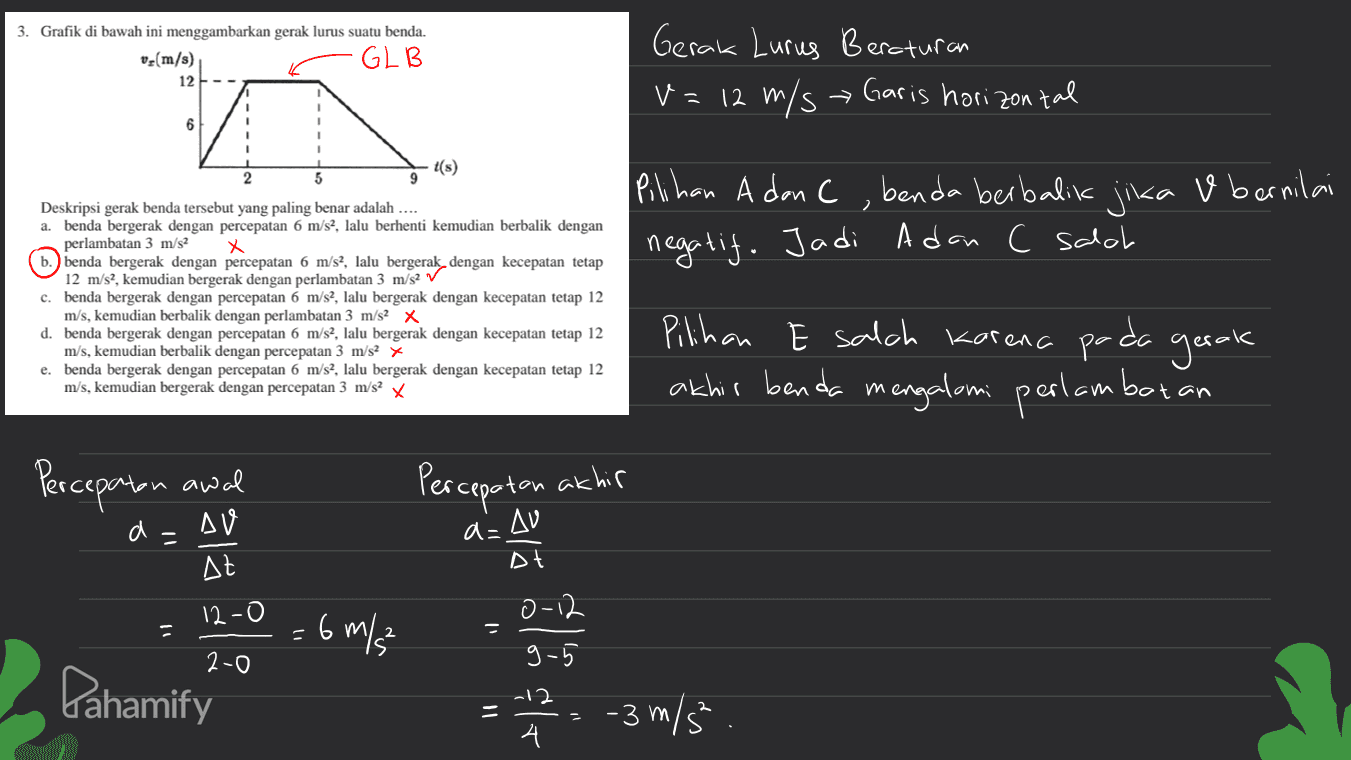 3. Grafik di bawah ini menggambarkan gerak lurus suatu benda.
vx(m/s)
GLB
12
6
t(s)
2 5 9
Deskripsi gerak benda tersebut yang paling benar adalah ….
a. benda bergerak dengan percepatan 6 m/s², lalu berhenti kemudian berbalik dengan
perlambatan 3 m/s² x
b. benda bergerak dengan percepatan 6 m/s², lalu bergerak dengan kecepatan tetap
12 m/s², kemudian bergerak dengan perlambatan 3 m/s² ✓
c. benda bergerak dengan percepatan 6 m/s², lalu bergerak dengan kecepatan tetap 12
m/s, kemudian berbalik dengan perlambatan 3 m/s² x
d. benda bergerak dengan percepatan 6 m/s², lalu bergerak dengan kecepatan tetap 12
m/s, kemudian berbalik dengan percepatan 3 m/s² x
e. benda bergerak dengan percepatan 6 m/s², lalu bergerak dengan kecepatan tetap 12
m/s, kemudian bergerak dengan percepatan 3 m/s² x
Gerak Lurus Beraturan
V = 12 m/s → Garis horizontal
Pilihan A dan C, benda berbalik jika V bernilai
negatif. Jadi A dan C salah
Pilihan E salah karena pada gerak
akhir benda mengalami perlambatan
Percepatan awal
a = ΔV
Δt
= 12-0
2-0
= 6 m/s²
Percepatan akhir
a = ΔV
Δt
= 0-12
9-5
= -12
4
= -3 m/s².
Pahamify